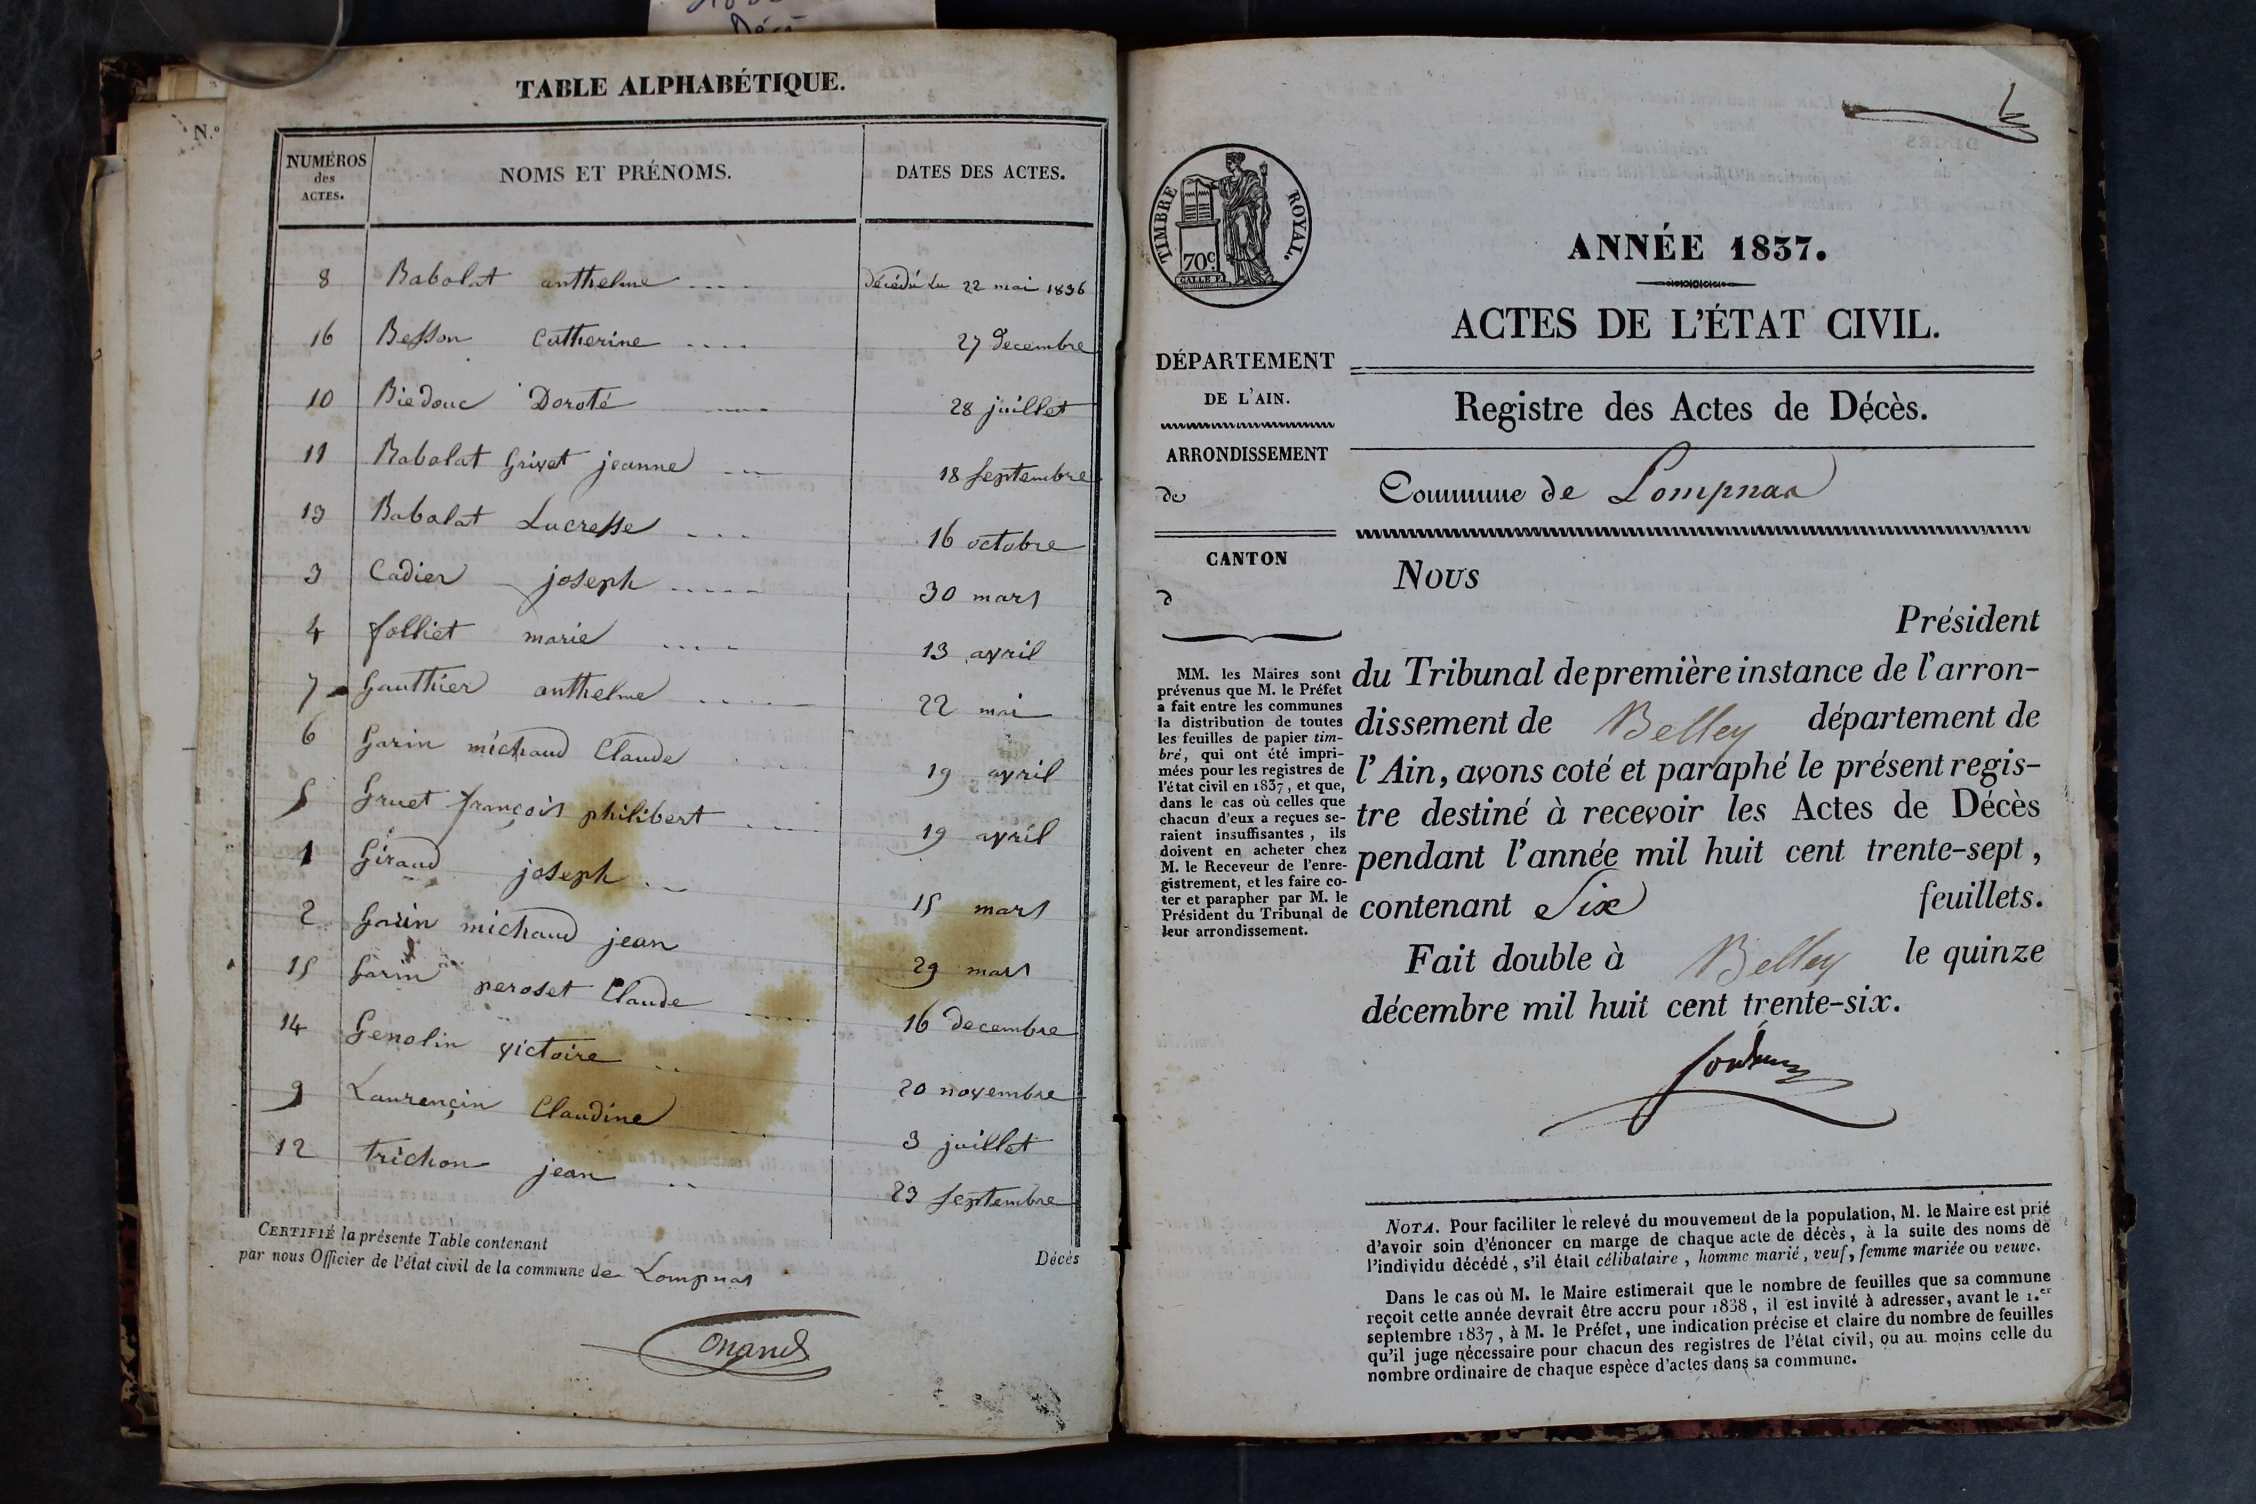 TABLE ALPHABÉTIQUE.
N.º
NUMÉROS des ACTES. NOMS ET PRÉNOMS. DATES DES ACTES.
8 Babolat anthelme .... décédé le 22 mai 1836
16 Besson Catherine .... 27 decembre
10 Biédouc Doroté .... 28 juillet
11 Babolat Grivet jeanne ... 18 septembre
13 Babolat Lucresse ... 16 octobre
3 Cadier joseph ..... 30 mars
4 folliet marie .... 13 avril
7 Gauthier anthelme ..... 22 mai
6 Garin michaud Claude .... 19 avril
5 Gruet françois philibert .... 19 avril
1 Giraud joseph .. 15 mars
2 Garin michaud jean 29 mars
15 Garin peroset Claude ..... 16 decembre
14 Genolin victoire .. 20 novembre
9 Laurençin Claudine 3 juillet
12 trichon jean .. 23 septembre
CERTIFIÉ la présente Table contenant Décès
par nous Officier de l'état civil de la commune de Lompnas
TIMBRE ROYAL.
70c
ANNÉE 1837.
ACTES DE L'ÉTAT CIVIL.
DÉPARTEMENT
DE L'AIN.
ARRONDISSEMENT
de
CANTON
d
MM. les Maires sont
prévenus que M. le Préfet
a fait entre les communes
la distribution de toutes
les feuilles de papier tim-
bré, qui ont été impri-
mées pour les registres de
l'état civil en 1837, et que,
dans le cas où celles que
chacun d'eux a reçues se-
raient insuffisantes, ils
doivent en acheter chez
M. le Receveur de l'enre-
gistrement, et les faire co-
ter et parapher par M. le
Président du Tribunal de
leur arrondissement.
Registre des Actes de Décès.
Commune de Lompnas
NOUS
Président
du Tribunal de première instance de l'arron-
dissement de Belley département de
l'Ain, avons coté et paraphé le présent regis-
tre destiné à recevoir les Actes de Décès
pendant l'année mil huit cent trente-sept,
contenant Six feuillets.
Fait double à Belley le quinze
décembre mil huit cent trente-six.
NOTA. Pour faciliter le relevé du mouvement de la population, M. le Maire est prié
d'avoir soin d'énoncer en marge de chaque acte de décès, à la suite des noms de
l'individu décédé, s'il était célibataire, homme marié, veuf, femme mariée ou veuve.
Dans le cas où M. le Maire estimerait que le nombre de feuilles que sa commune
reçoit cette année devrait être accru pour 1838, il est invité à adresser, avant le 1.er
septembre 1837, à M. le Préfet, une indication précise et claire du nombre de feuilles
qu'il juge nécessaire pour chacun des registres de l'état civil, ou au moins celle du
nombre ordinaire de chaque espèce d'actes dans sa commune.